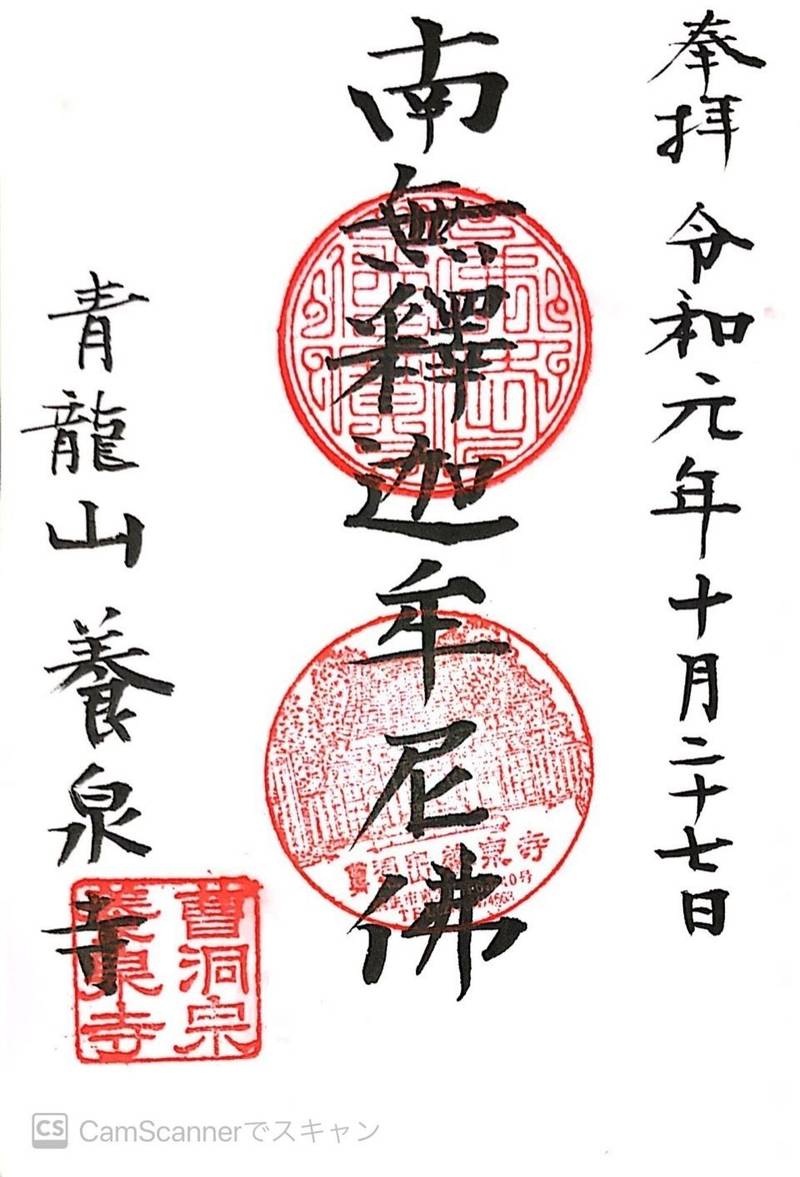 奉拝 令和元年十月二十七日
南無釋迦牟尼佛
青龍山 養泉寺
曹洞宗
養泉寺
曹洞宗養泉寺
CS CamScannerでスキャン